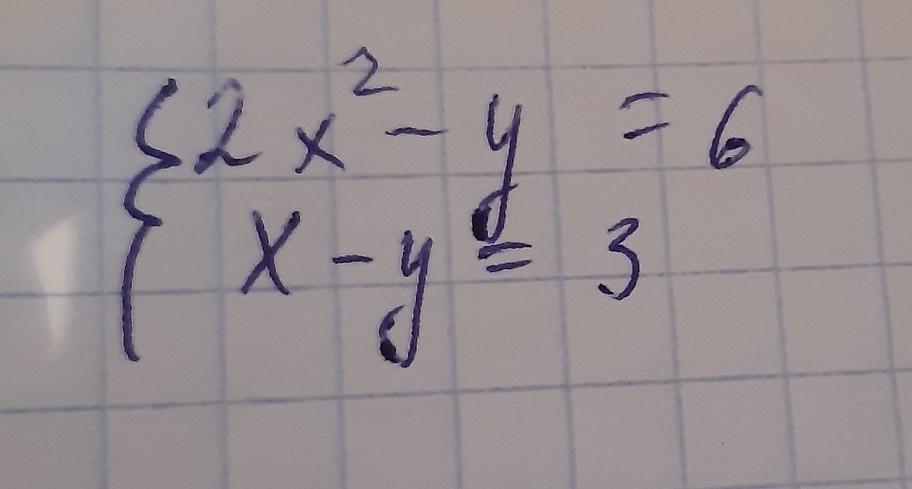 { 2x² - y = 6
x - y = 3